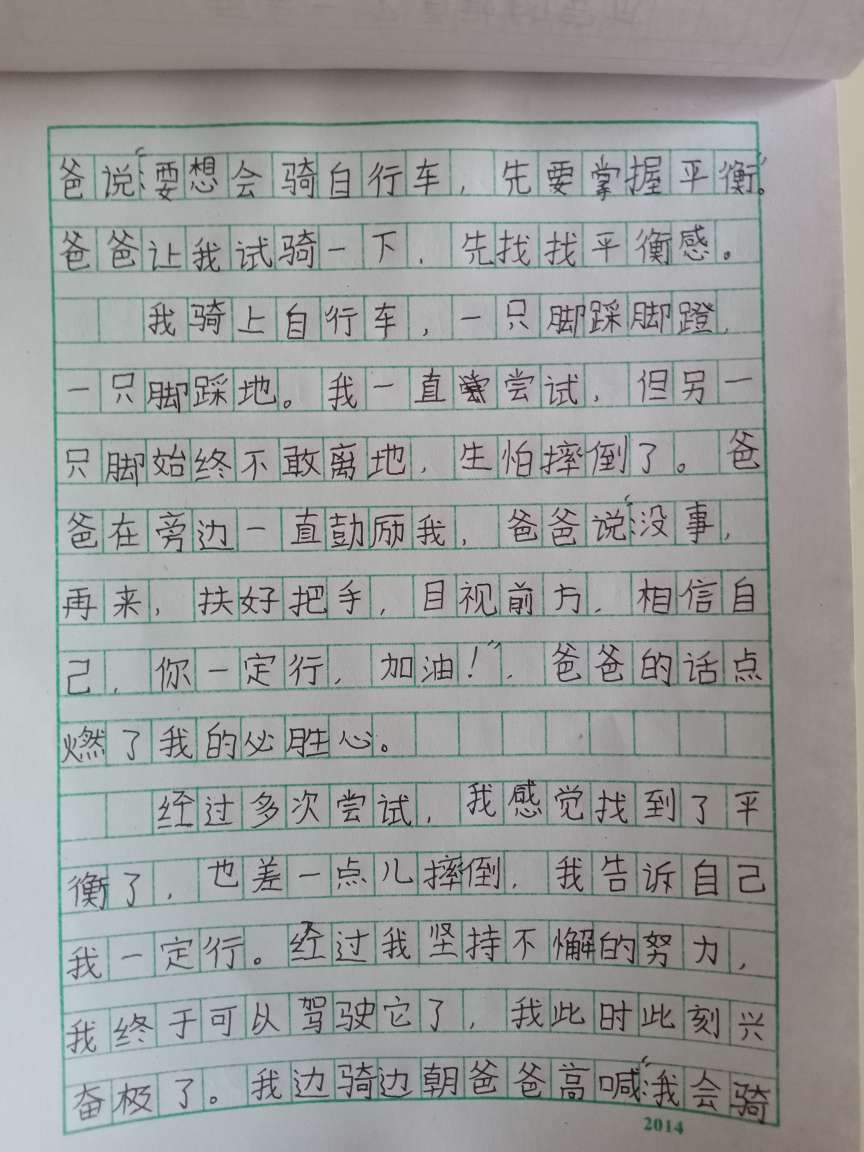 爸说:“要想会骑自行车，先要掌握平衡。”
爸爸让我试骑一下，先找找平衡感。
我骑上自行车，一只脚踩脚蹬，
一只脚踩地。我一直尝试，但另一
只脚始终不敢离地，生怕摔倒了。爸
爸在旁边一直鼓励我，爸爸说:“没事，
再来，扶好把手，目视前方，相信自
己，你一定行，加油！”，爸爸的话点
燃了我的必胜心。
经过多次尝试，我感觉找到了平
衡了，也差一点儿摔倒，我告诉自己
我一定行。经过我坚持不懈的努力，
我终于可以驾驶它了，我此时此刻兴
奋极了。我边骑边朝爸爸高喊:“我会骑
2014